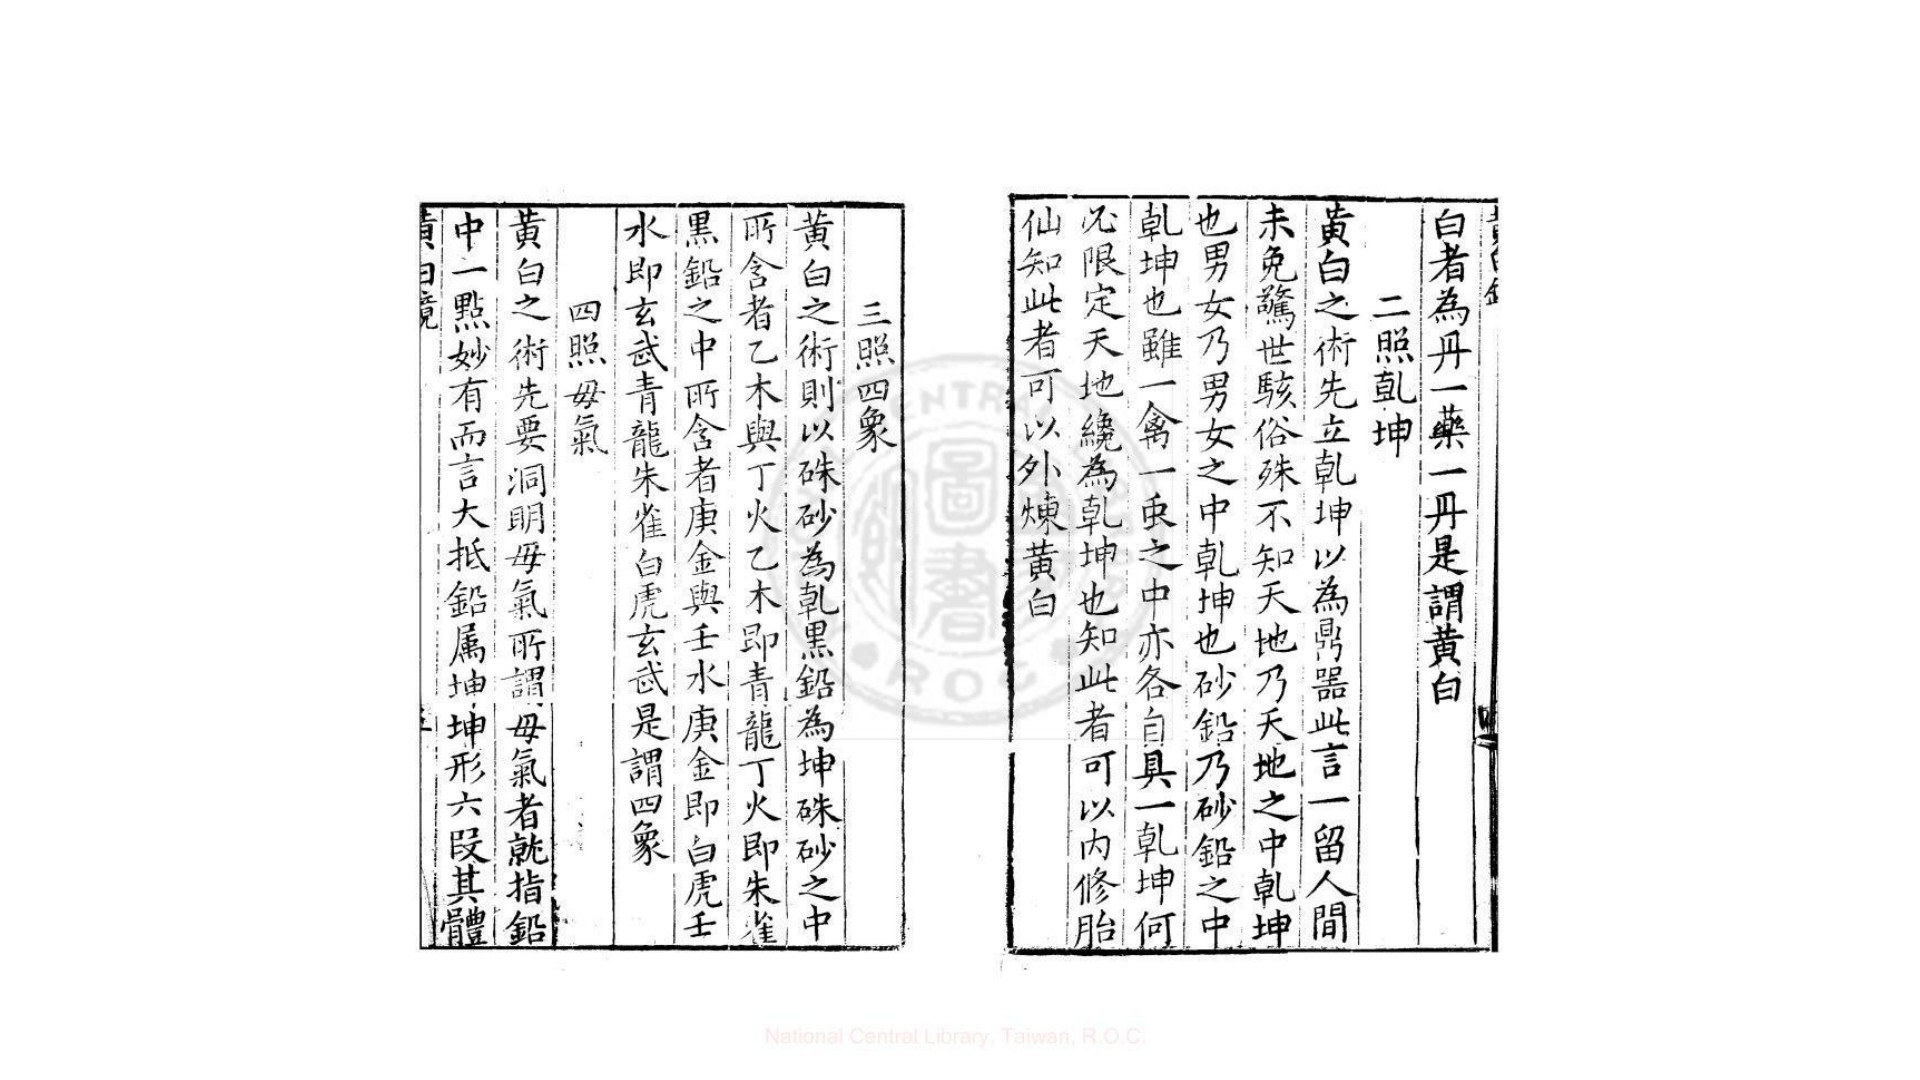 白者為丹一藥一丹是謂黃白
二照乹坤
黃白之術先立乹坤以為鼎器此言一留人間
未免驚世駭俗殊不知天地乃天地之中乹坤
也男女乃男女之中乹坤也砂鉛乃砂鉛之中
乹坤也雖一禽一䖝之中亦各自具一乹坤何
必限定天地纔為乹坤也知此者可以内修胎
仙知此者可以外煉黃白
三照四象
黃白之術則以硃砂為乹黑鉛為坤硃砂之中
所含者乙木與丁火乙木即青龍丁火即朱雀
黑鉛之中所含者庚金與壬水庚金即白虎壬
水即玄武青龍朱雀白虎玄武是謂四象
四照母氣
黃白之術先要洞明母氣所謂母氣者就指鉛
中一點妙有而言大抵鉛属坤坤形六段其體
黃白鏡
National Central Library, Taiwan, R.O.C.